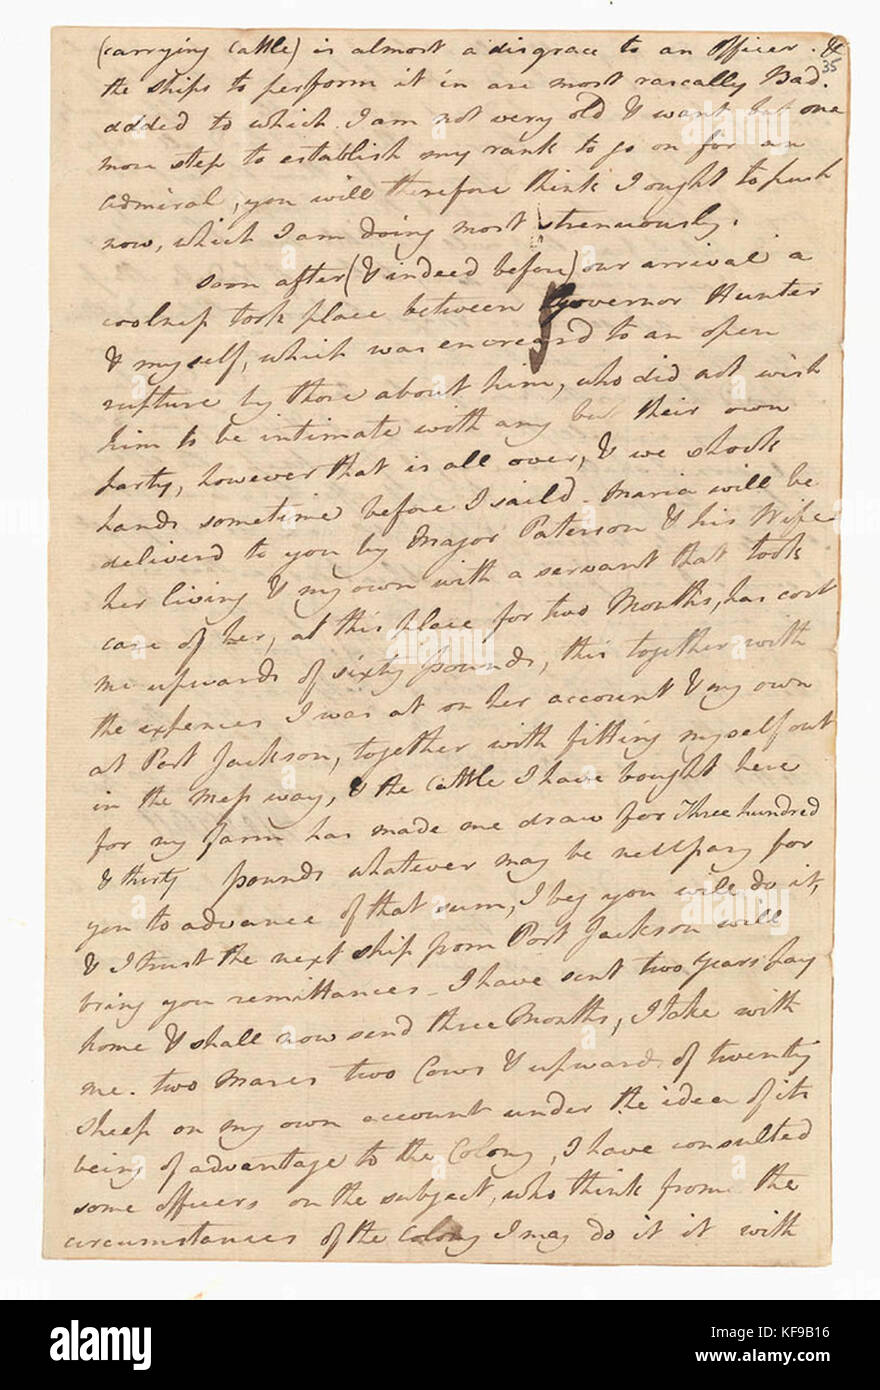 (carrying cattle) is almost a disgrace to an officer. &
35
the ships to perform it in are most rascally Bad.
added to which I am not very old & want but one
more step to establish my rank to go on for an
admiral, you will therefore think I ought to push
now, which I am doing most strenuously.
soon after (& indeed before) our arrival a
coolness took place between Governor Hunter
& myself, which was encreased to an open
rupture by those about him, who did not wish
him to be intimate with any but their own
party, however that is all over, & we shook
hands sometime before I saild - Maria will be
deliverd to you by Major Paterson & his Wife
her living & my own with a servant that took
care of her, at this place for two Months, has cost
me upwards of sixty pounds, this together with
the expences I was at on her account & my own
at Port Jackson, together with fitting myself out
in the mess way, & the cattle I have bought here
for my farm has made me draw for Three hundred
& thirty pounds whatever may be nessary for
you to advance of that sum, I beg you will do it,
& I trust the next ship from Port Jackson will
bring you remittances - I have sent two years pay
home & shall now send three Months, I take with
me. two Mares two Cows & upwards of twenty
sheep on my own account under the idea of its
being of advantage to the Colony, I have consulted
some officers on the subject, who think from the
circumstances of the Colony I may do it it with
alamy
alamy
Image ID: KF9B16
www.alamy.com